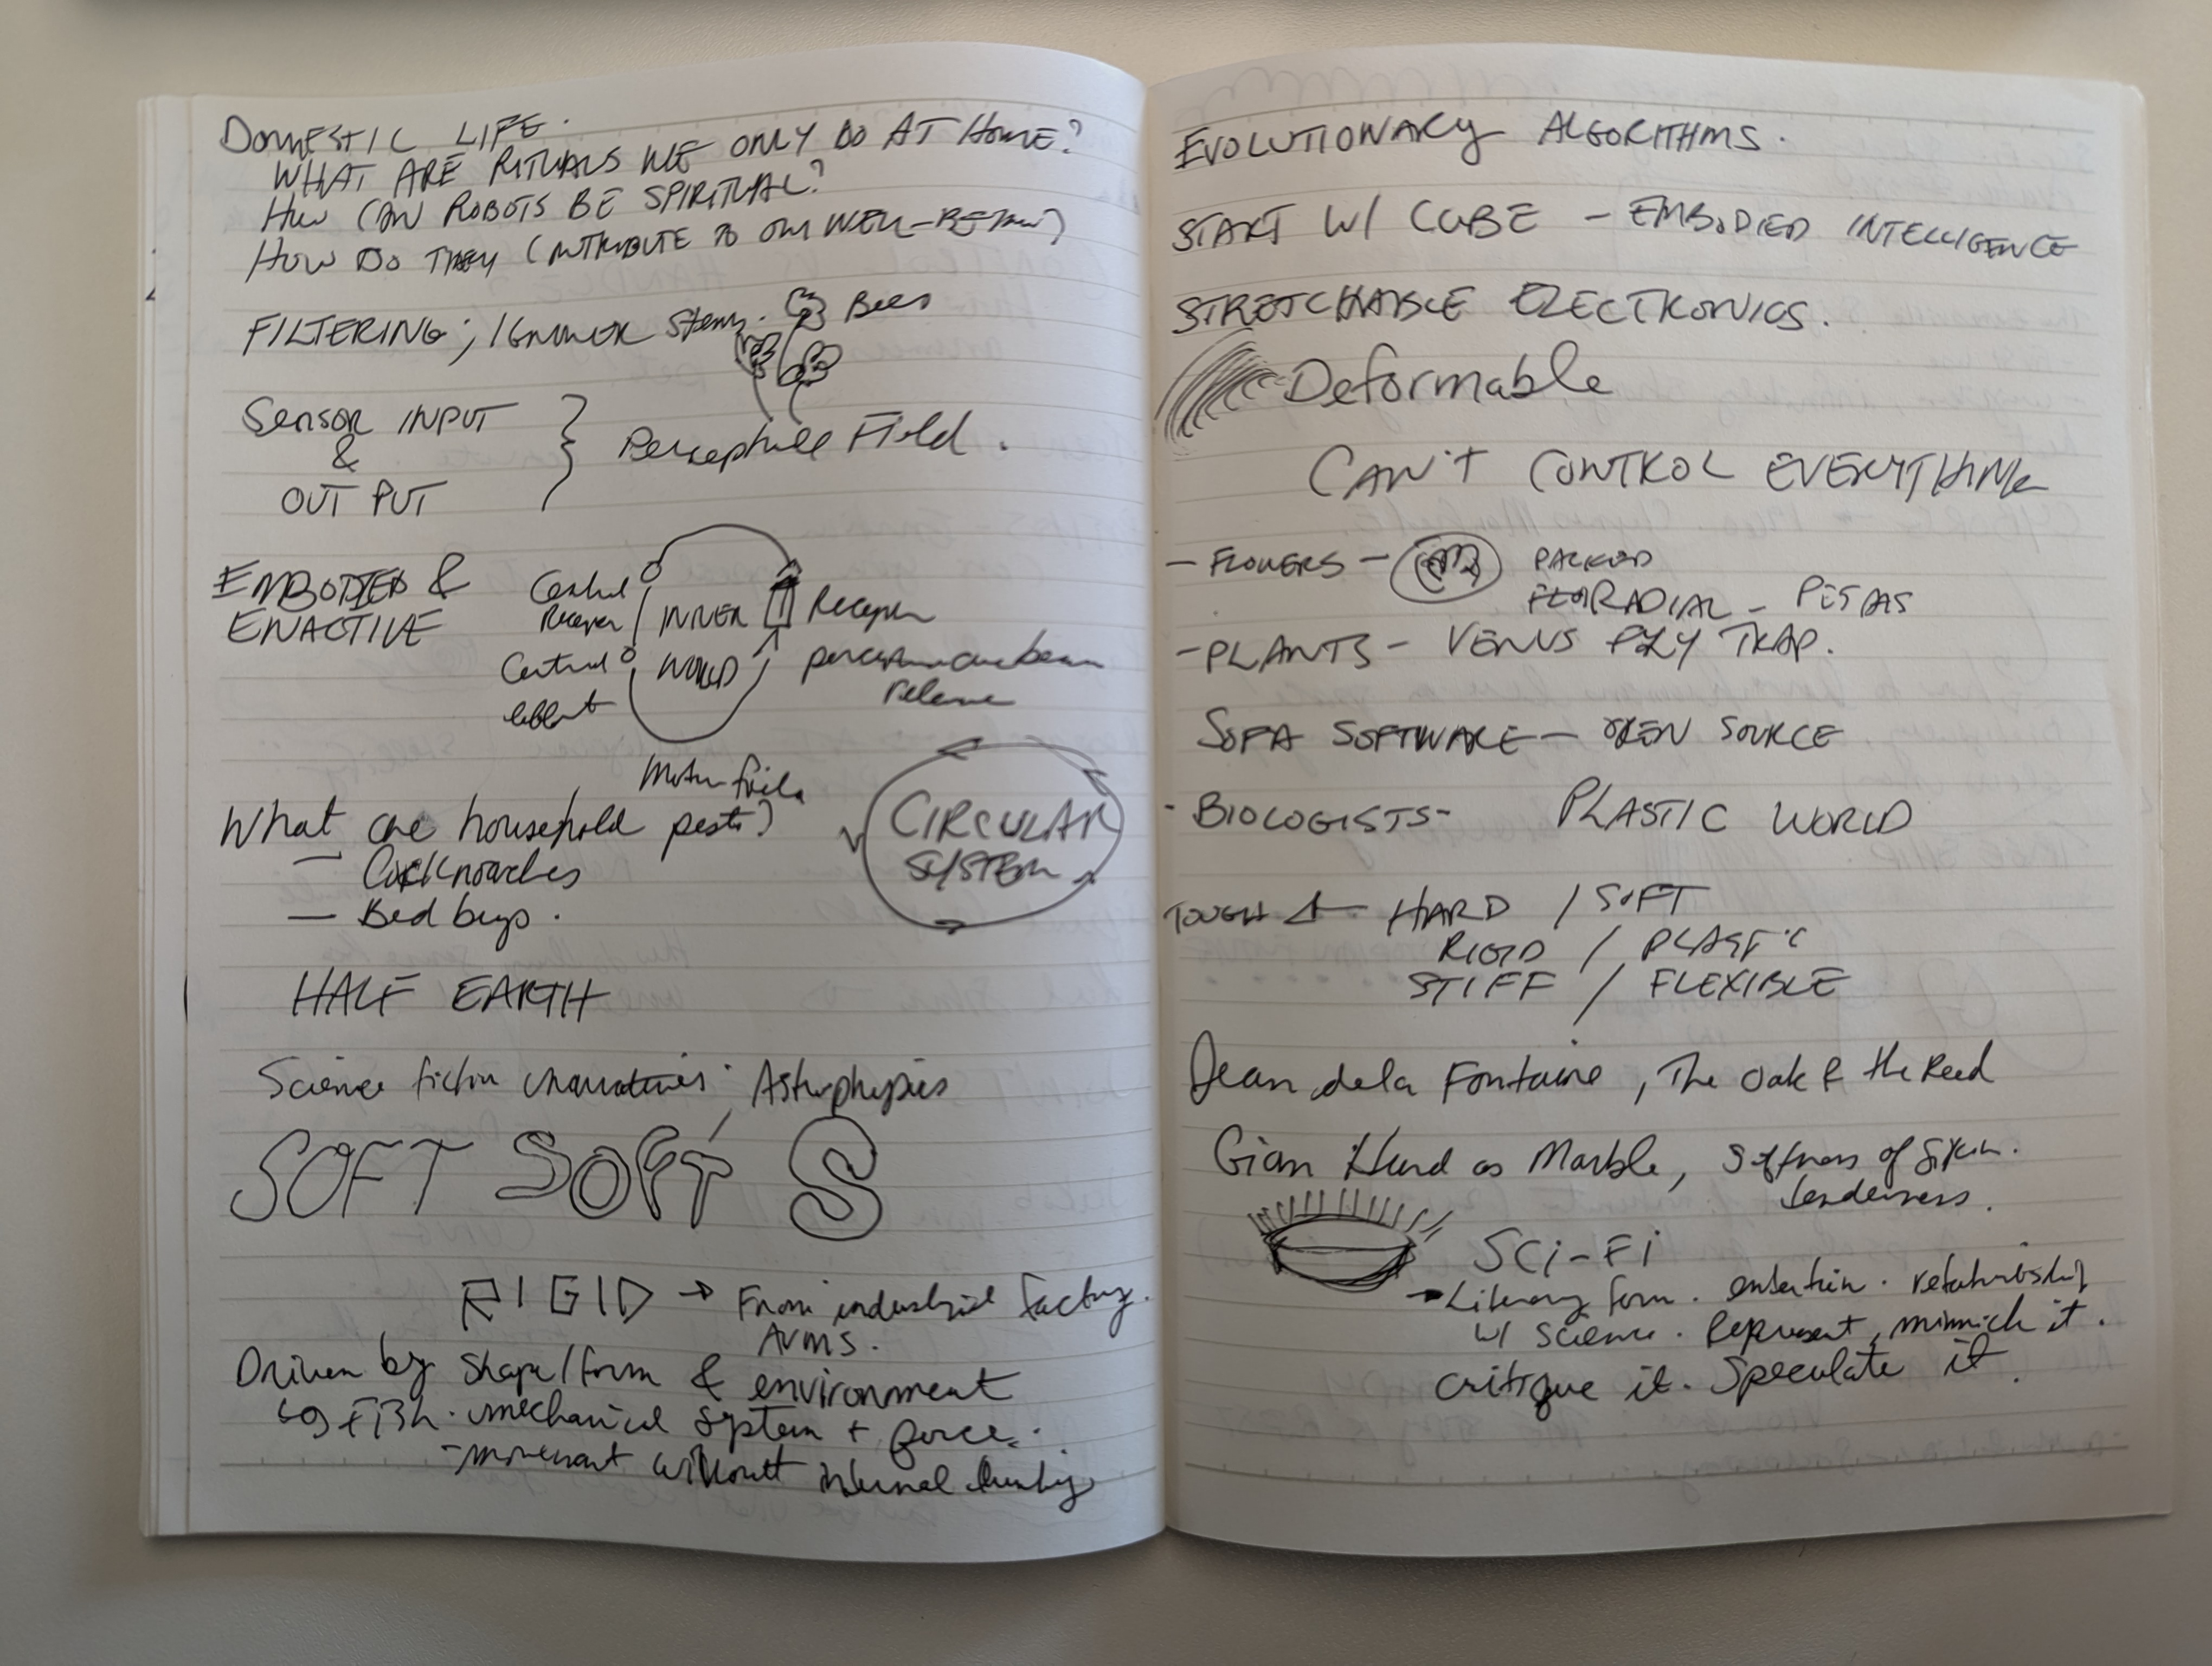 DOMESTIC LIFE.
WHAT ARE RITUALS WE ONLY DO AT HOME?
HOW CAN ROBOTS BE SPIRITUAL?
HOW DO THEY CONTRIBUTE TO OUR WELL-BEING?
FILTERING; IGNORER Stems. Bees
Sensor INPUT
&
OUTPUT
Perceptual Field.
EMBODIED &
ENACTIVE
Central
Receptor
INNER
WORLD
Receptor
Central
effect
perception cue bearer
release
Motor field
What are household pests?
— Cockroaches
— Bed bugs.
CIRCULAR
SYSTEM
HALF EARTH
Science fiction Astrophysics
SOFT SOFT S
RIGID → From industrial factory
Arms.
Driven by shape/form & environment
↳ FISH. mechanical system + force.
- movement without internal
EVOLUTIONARY ALGORITHMS.
START W/ CUBE - EMBODIED INTELLIGENCE
STRETCHABLE ELECTRONICS.
Deformable
CAN'T CONTROL EVERYTHING
- FLOWERS - PACKED
RADIAL - PETALS
- PLANTS - VENUS FLY TRAP.
SOFA SOFTWARE - OPEN SOURCE
- BIOLOGISTS - PLASTIC WORLD
TOUGH ← HARD / SOFT
RIGID / PLASTIC
STIFF / FLEXIBLE
Jean de la Fontaine, The Oak & the Reed
Gian Hard as Marble, Softness of Skin.
tenderness.
SCI-FI
→ Literary form. entertain. relationship
w/ science. Represent, mimick it.
critique it. Speculate it.